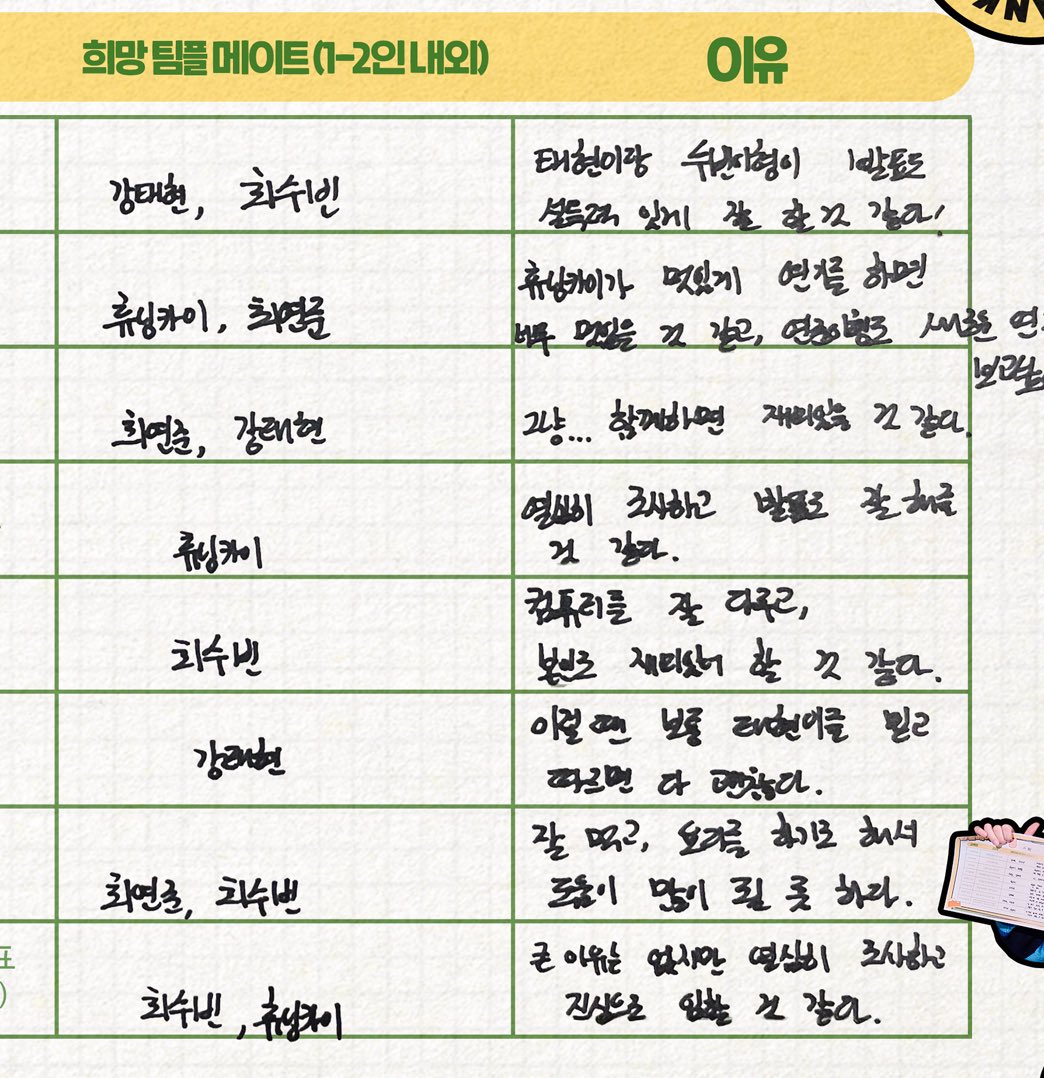 희망 팀플 메이트 (1-2인 내외)
이유
강태현, 최수빈
태현이랑 수빈이형이 발표도
설득력 있게 잘 할 것 같다!
휴닝카이, 최연준
휴닝카이가 멋있게 연기를 하면
너무 멋있을 것 같고, 연준이형도 새로운
보고싶
최연준, 강태현
그냥... 함께하면 재미있을 것 같다.
휴닝카이
열심히 조사하고 발표도 잘 해줄
것 같다.
최수빈
컴퓨터를 잘 다루고,
본인도 재미있어 할 것 같다.
강태현
이럴 땐 보통 태현이를 믿고
따르면 다 괜찮다.
최연준, 최수빈
잘 먹고, 요리를 하기도 해서
도움이 많이 될 듯 하다.
표
)
최수빈, 휴닝카이
큰 이유는 없지만 열심히 조사하고
진심으로 임할 것 같다.